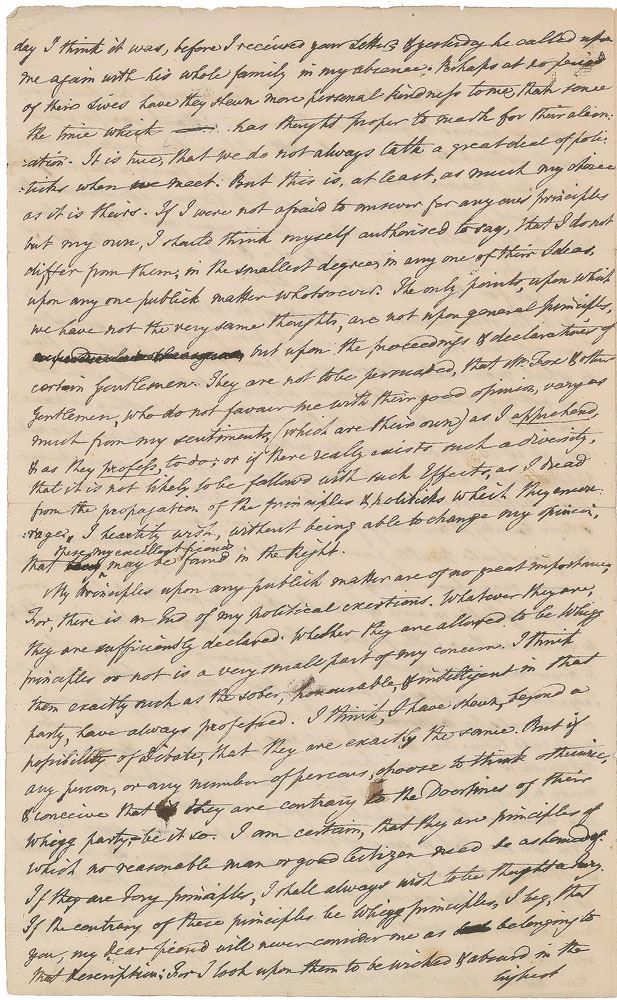 day I think it was, before I received your Letter; & yesterday he called upon
me again with his whole family in my absence. Perhaps at no period
of their Lives have they shewn more personal kindness to me, than since
the time which —— has thought proper to mark for their alien-
-ation. It is true, that we do not always talk a great deal of poli-
-ticks when we meet. But this is, at least, as much my choice
as it is theirs. If I were not afraid to answer for any ones principles
but my own, I should think myself authorised to say, that I do not
differ from them, in the smallest degree, in any one of their Ideas,
upon any one publick matter whatsoever. The only points, upon which
we have not the very same thoughts, are not upon general principles,
but upon the proceedings & declarations of
certain Gentlemen. They are not to be persuaded, that Mr. Fox & other
Gentlemen, who do not favour me with their good opinion, vary as
much from my sentiments, (which are their own) as I apprehend,
& as they profess, to do; or if there really exists such a diversity,
that it is not likely to be followed with such Effects, as I dread
from the propagation of the principles & politicks which they encou-
-rage. I heartily wish, without being able to change my opinion,
that these my excellent friends may be found in the Right.
My Principles upon any publick matter are of no great importance;
For, there is an End of my political exertions. Whatever they are,
they are sufficiently declared. Whether they are allowed to be Whigg
principles or not is a very small part of my concern. I think
them exactly such as the sober, honourable, & intelligent in that
party, have always professed. I think, I have shewn, beyond a
possibility of debate, that they are exactly the same. But if
any person, or any number of persons, choose to think otherwise,
& conceive that they are contrary to the Doctrines of their
Whigg party, be it so. I am certain, that they are principles of
which no reasonable man or good Citizen need be ashamed of.
If they are Tory principles, I shall always wish to be thought a Tory.
If the contrary of these principles be Whigg principles, I beg, that
you, my dear friend will never consider me as belonging to
that description: For I look upon them to be wicked & absurd in the
highest